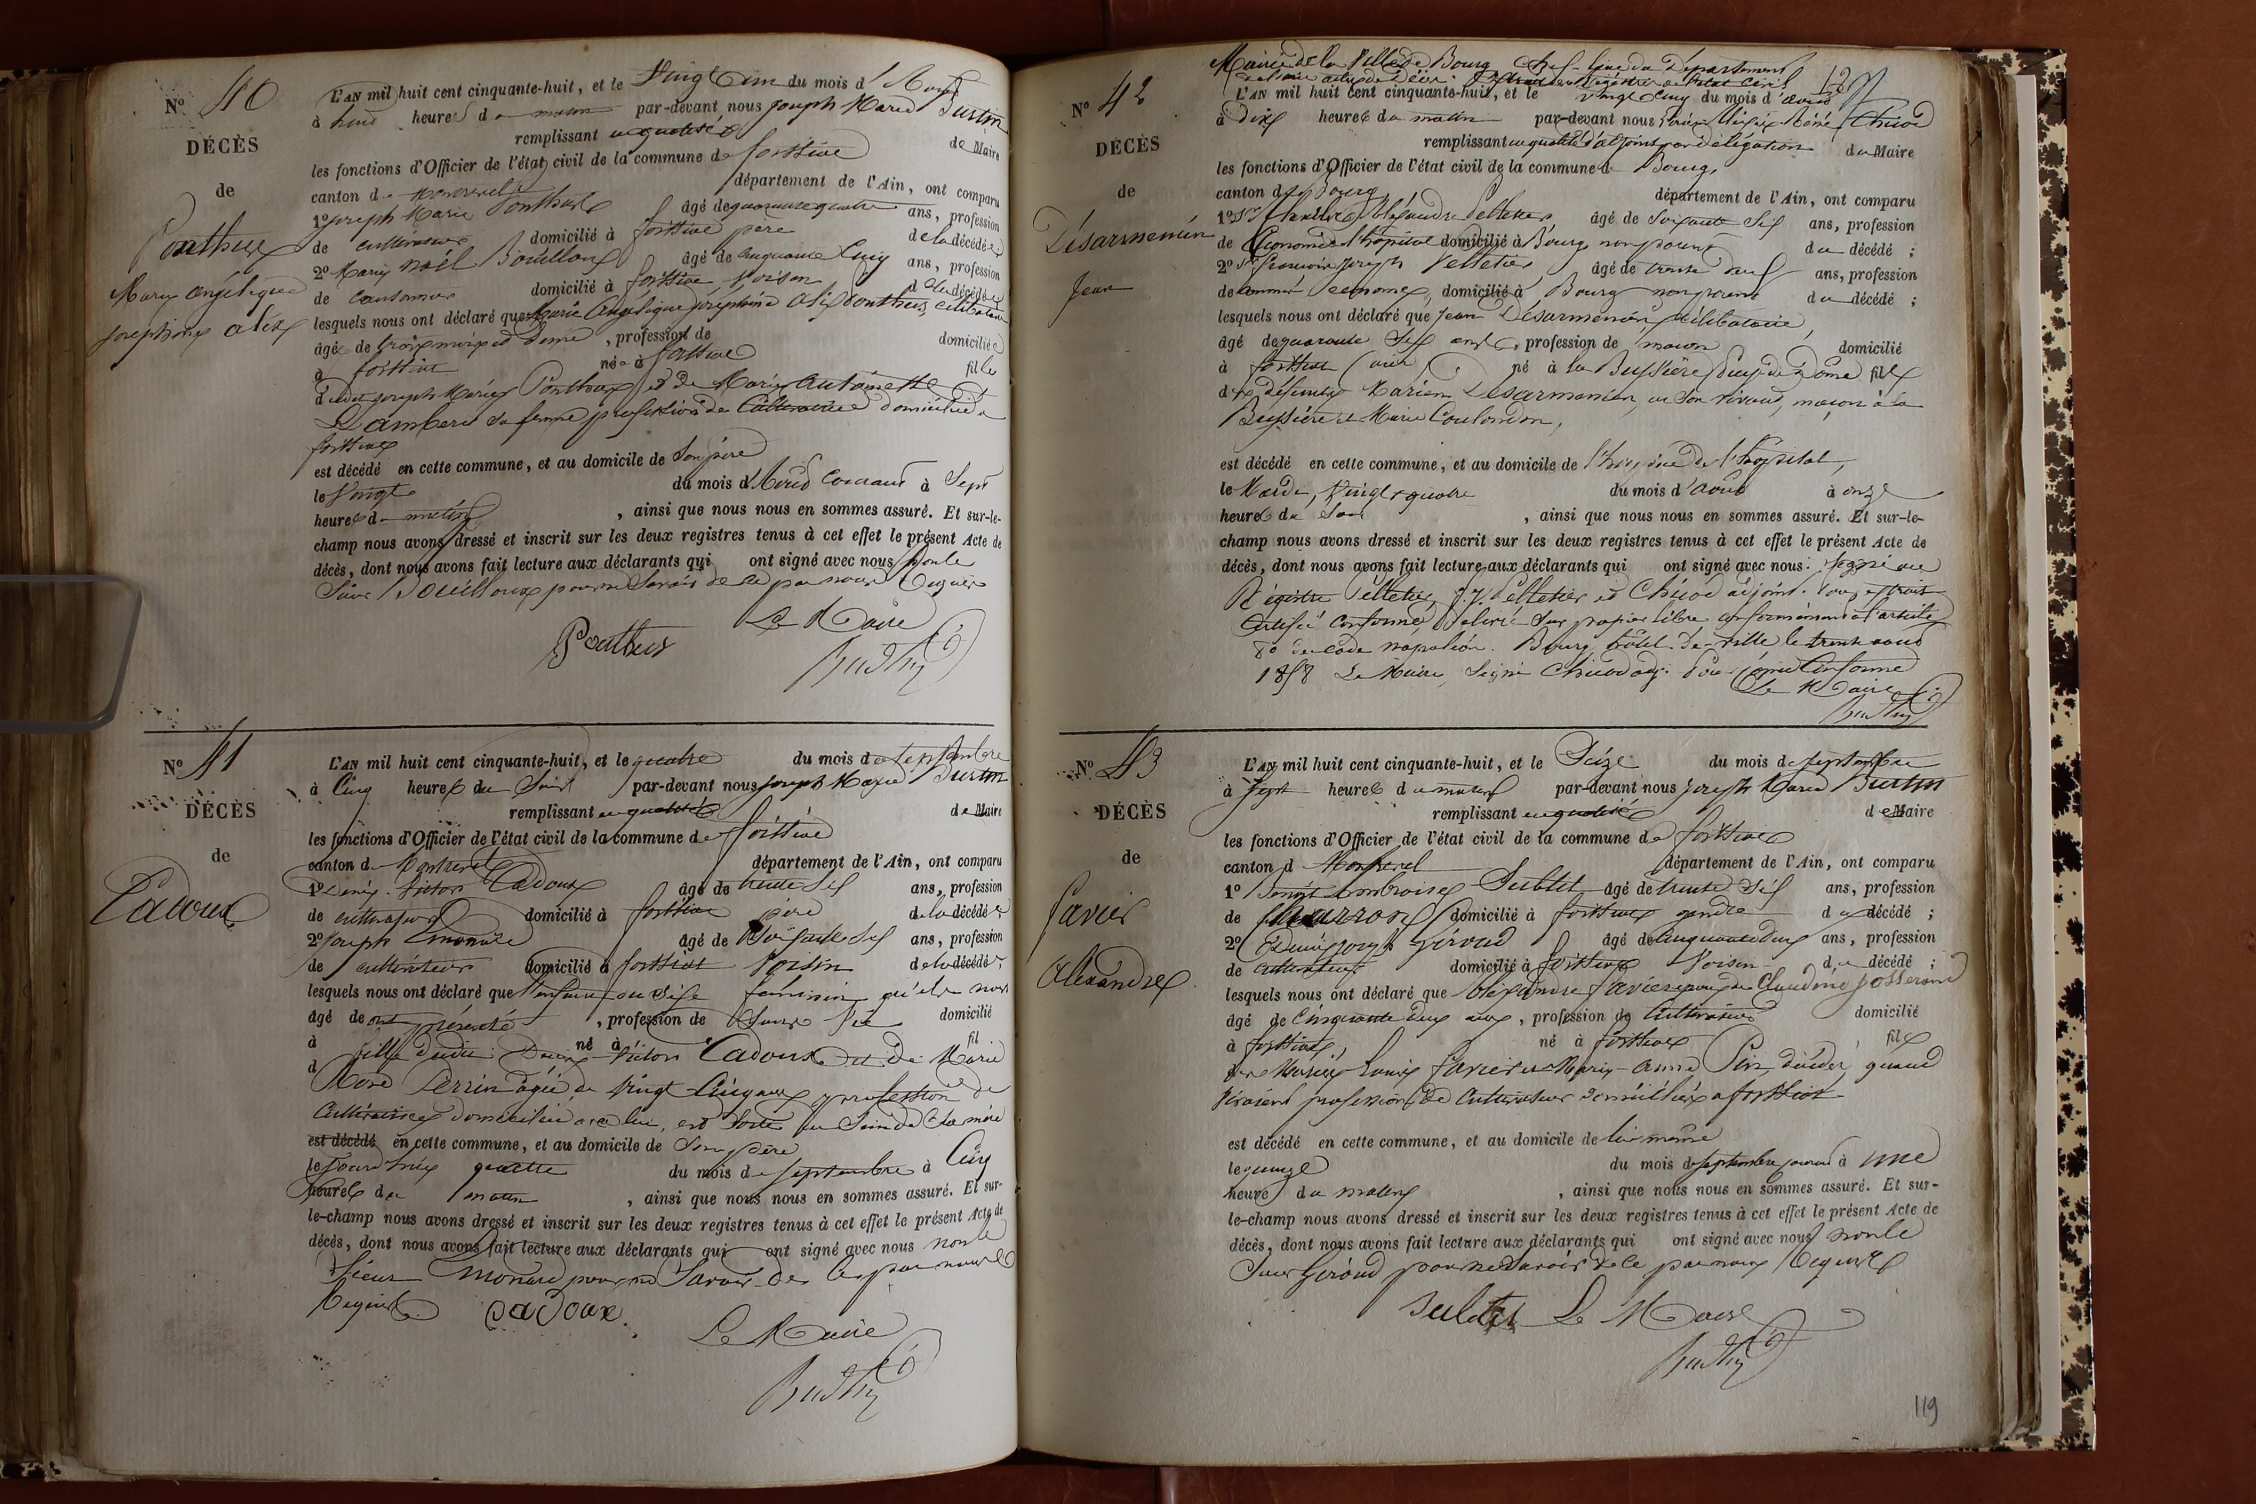 N° 40
DÉCÈS
de
Ponthus
Marie Angélique
Joséphine Alix
L'AN mil huit cent cinquante-huit, et le Vingt un du mois d'
à heures d matin par-devant nous Joseph Marie Burtin
remplissant en qualité de Maire
les fonctions d'Officier de l'état civil de la commune de
canton de Montrevel département de l'Ain, ont comparu
1° Joseph Marie Ponthus âgé de quarante quatre ans, profession
de cultivateur domicilié à père de la décédée
2° Marie Noël Bouilloux âgé de cinquante cinq ans, profession
de domicilié à voisin d décédé
lesquels nous ont déclaré que Marie Angélique Joséphine Alix Ponthus célibataire
âgé de trois mois et demi, profession de domiciliée
à née à fille
dudit Joseph Marie Ponthus et de Marie Antoinette
Lambert sa femme profession de Cultivatrice domiciliée à
est décédé en cette commune, et au domicile de son père
le vingt du mois d'Août courant à Sept
heures d matin, ainsi que nous nous en sommes assuré. Et sur-le-
champ nous avons dressé et inscrit sur les deux registres tenus à cet effet le présent Acte de
décès, dont nous avons fait lecture aux déclarants qui ont signé avec nous non le
Sieur Bouilloux pour ne savoir de ce par nous requis
Le Maire
Ponthus
Burtin
N° 41
DÉCÈS
de
Cadoux
L'AN mil huit cent cinquante-huit, et le quatre du mois de septembre
à Cinq heures du Soir par-devant nous Joseph Marie Burtin
remplissant en qualité de Maire
les fonctions d'Officier de l'état civil de la commune de
canton de Montrevel département de l'Ain, ont comparu
1° Denis Victor Cadoux âgé de trente six ans, profession
de cultivateur domicilié à père de la décédée
2° Joseph Monard âgé de Soixante Six ans, profession
de cultivateur domicilié à voisin de la décédée,
lesquels nous ont déclaré que l'enfant du sexe féminin qu'ils nous
âgé de ont présenté, profession de Sans vie domicilié
à né à fil
d fille dudit Denis Victor Cadoux et de Marie
Rose Perrin âgée de Vingt Cinq ans profession de
Cultivatrice domiciliée avec lui, est sortie du Sein de sa mère
est décédé en cette commune, et au domicile de Son père
le jourd'hui quatre du mois de septembre à Cinq
heures du matin, ainsi que nous nous en sommes assuré. Et sur-
le-champ nous avons dressé et inscrit sur les deux registres tenus à cet effet le présent Acte de
décès, dont nous avons fait lecture aux déclarants qui ont signé avec nous non le
Sieur Monard pour ne Savoir de ce par nous
Requis Cadoux.
Le Maire
Burtin
Mairie de la Ville de Bourg Chef-lieu du Département
N° 42
DÉCÈS
de
Désarmenien
Jean
L'AN mil huit cent cinquante-huit, et le vingt cinq du mois d'août
à Dix heures du matin par-devant nous René Chicod
remplissant en qualité d'adjoint par délégation du Maire
les fonctions d'Officier de l'état civil de la commune de Bourg,
canton de Bourg département de l'Ain, ont comparu
1° Sr Alexandre Pelletier âgé de Soixante Six ans, profession
de Econome de l'hôpital domicilié à Bourg non parent du décédé ;
2° Sr François Joseph Pelletier âgé de trente neuf ans, profession
de économe, domicilié à Bourg non parent du décédé ;
lesquels nous ont déclaré que Jean Désarmenien, célibataire,
âgé de quarante Six ans, profession de maçon domicilié
à (Ain), né à la Bussière (Puy de Dôme) fils
de défunts Marien Désarmenien, en son vivant, maçon à la
Bussière et Marie Coulondon,
est décédé en cette commune, et au domicile de l'hospice de l'hôpital,
le Mardi, Vingt quatre du mois d'août à onze
heures du Soir, ainsi que nous nous en sommes assuré. Et sur-le-
champ nous avons dressé et inscrit sur les deux registres tenus à cet effet le présent Acte de
décès, dont nous avons fait lecture aux déclarants qui ont signé avec nous : Signé au
Registre Pelletier, F. J. Pelletier et Chicod adjoint. Pour extrait
Certifié Conforme, Délivré Sur papier libre conformément à l'article
80 du code napoléon. Bourg, hôtel de ville le trente août
1858 Le Maire, Signé Chicod adj. Pour copie Conforme
Le Maire
Burtin
N° 43
DÉCÈS
de
Favier
Alexandre
L'AN mil huit cent cinquante-huit, et le Seize du mois de septembre
à Sept heures du matin par-devant nous Joseph Marie Burtin
remplissant en qualité de Maire
les fonctions d'Officier de l'état civil de la commune de
canton d Montrevel département de l'Ain, ont comparu
1° Benoît Ambroise Sublet âgé de trente Six ans, profession
de domicilié à gendre du décédé ;
2° Denis Joseph Giroud âgé de cinquante deux ans, profession
de cultivateur domicilié à Voisin du décédé ;
lesquels nous ont déclaré que Alexandre Favier époux de Claudine Josserand
âgé de Cinquante deux ans, profession de Cultivateur domicilié
à né à fils
de Louis Favier et Marie-Anne Pin décédés, quand
vivaient profession de Cultivateurs domiciliés à
est décédé en cette commune, et au domicile de lui même
le quinze du mois de septembre courant à une
heure du matin, ainsi que nous nous en sommes assuré. Et sur-
le-champ nous avons dressé et inscrit sur les deux registres tenus à cet effet le présent Acte de
décès, dont nous avons fait lecture aux déclarants qui ont signé avec nous non le
Sieur Giroud pour ne savoir de ce par nous Requis
Sublet Le Maire
Burtin
119